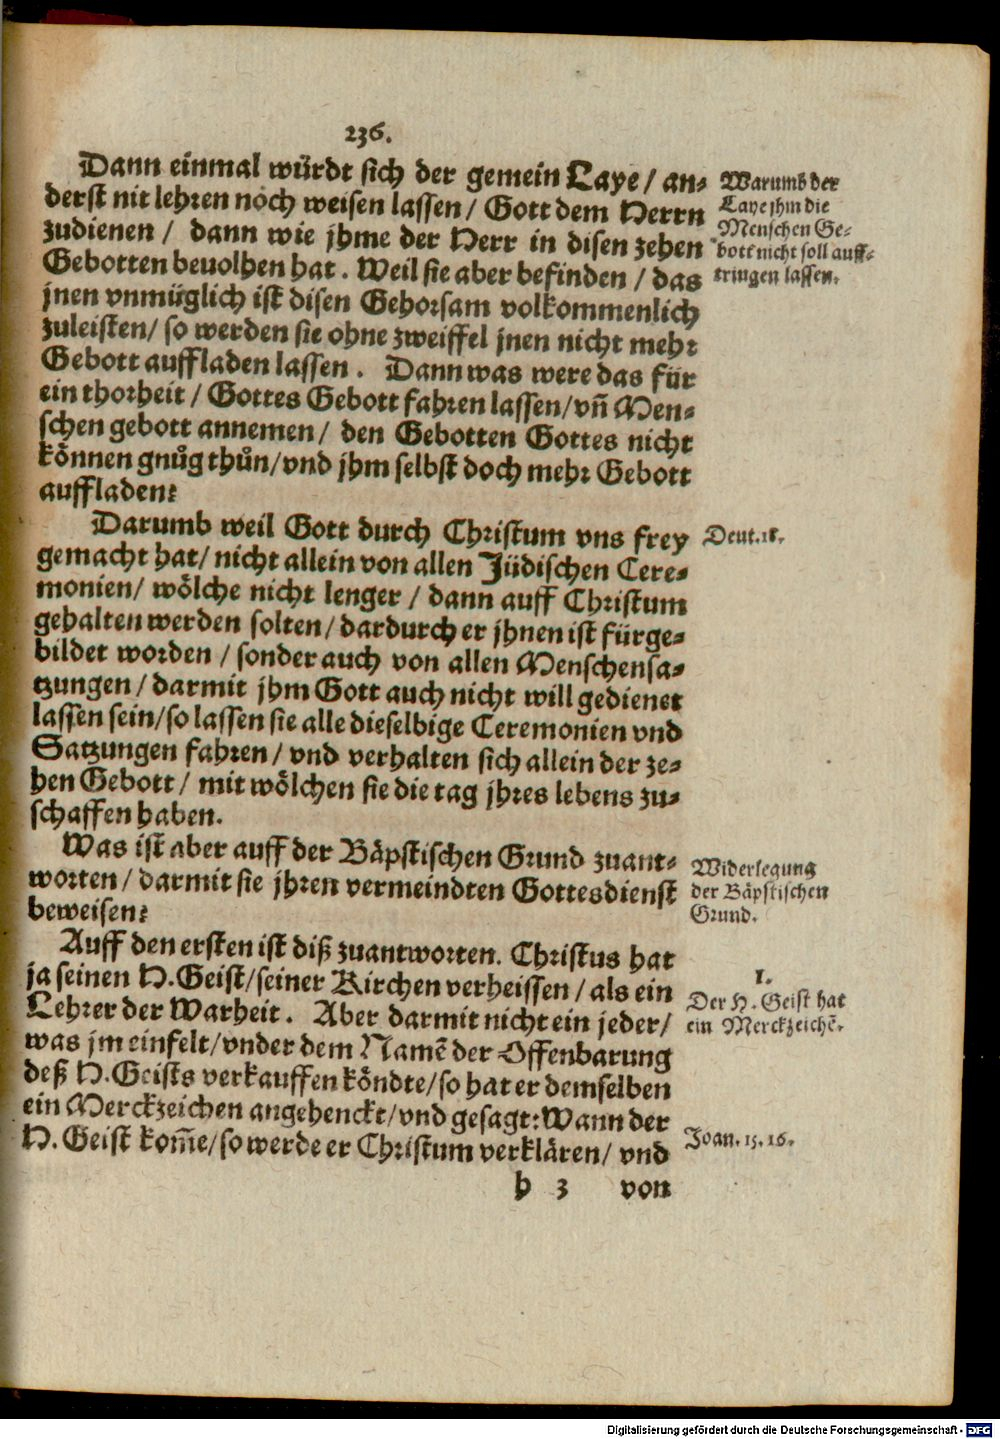 236.
Dann einmal würdt sich der gemein Laye / an-
derst nit lehren noch weisen lassen / Gott dem Herrn
zudienen / dann wie jhme der Herr in disen zehen
Gebotten bevolhen hat. Weil sie aber befinden / das
jnen vnmüglich ist disen Gehorsam volkommenlich
zuleisten / so werden sie ohne zweiffel jnen nicht mehr
Gebott auffladen lassen. Dann was were das für
ein thorheit / Gottes Gebott fahren lassen / vñ Men-
schen gebott annemen / den Gebotten Gottes nicht
können gnůg thůn / vnd jhm selbst doch mehr Gebott
auffladen?
Warumb der
Laye jhm die
Menschen Ge-
bott nicht soll auff-
tringen lassen.
Darumb weil Gott durch Christum vns frey
gemacht hat / nicht allein von allen Jüdischen Cere-
monien / wölche nicht lenger / dann auff Christum
gehalten werden solten / dardurch er jhnen ist fürge-
bildet worden / sonder auch von allen Menschensa-
tzungen / darmit jhm Gott auch nicht will gedienet
lassen sein / so lassen sie alle dieselbige Ceremonien vnd
Satzungen fahren / vnd verhalten sich allein der ze-
hen Gebott / mit wölchen sie die tag jhres lebens zu-
schaffen haben.
Deut. 18.
Was ist aber auff der Bäpstischen Grund zuant-
worten / darmit sie jhren vermeindten Gottesdienst
beweisen?
Widerlegung
der Bäpstischen
Grund.
Auff den ersten ist diß zuantworten. Christus hat
ja seinen H. Geist / seiner Kirchen verheissen / als ein
Lehrer der Warheit. Aber darmit nicht ein jeder /
was jm einfelt / vnder dem Namẽ der Offenbarung
deß H. Geists verkauffen köndte / so hat er demselben
ein Merckzeichen angehenckt / vnd gesagt: Wann der
H. Geist kom̃e / so werde er Christum verklären / vnd
1.
Der H. Geist hat
ein Merckzeichẽ.
Joan. 15. 16.
h 3 von
Digitalisierung gefördert durch die Deutsche Forschungsgemeinschaft - DFG